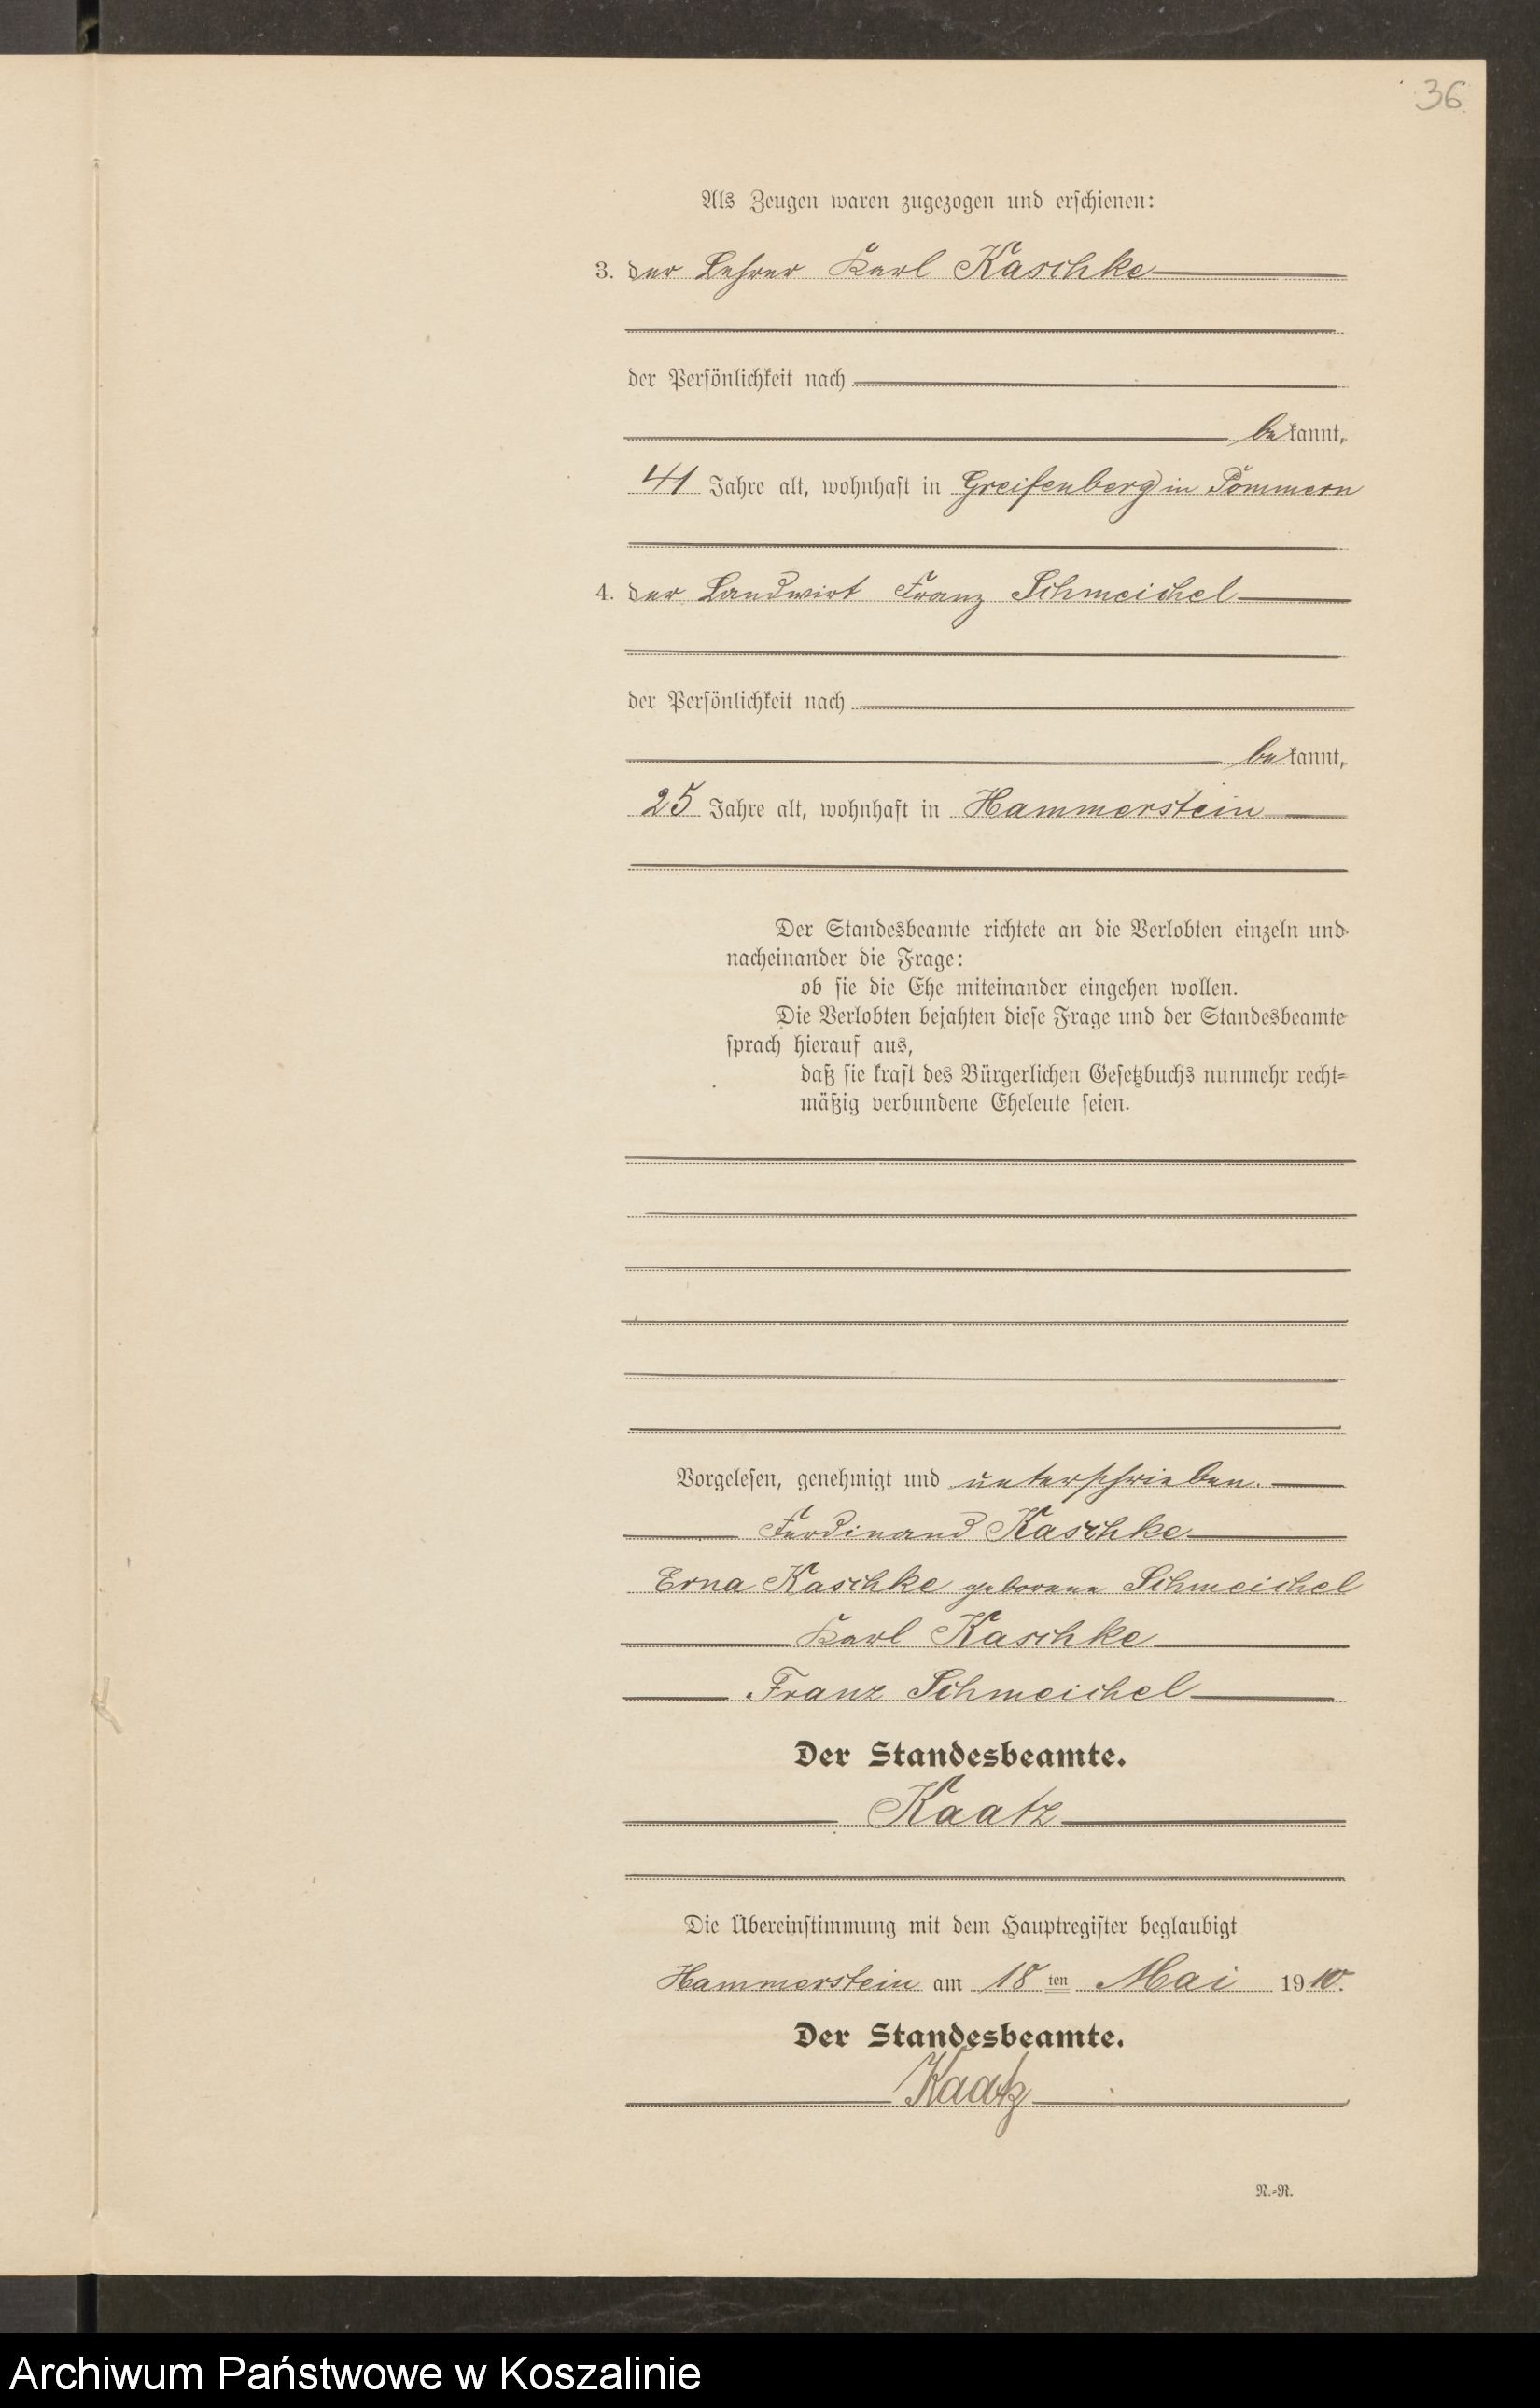 36.
Als Zeugen waren zugezogen und erschienen:
3. der Lehrer Karl Kaschke
der Persönlichkeit nach
bekannt,
41 Jahre alt, wohnhaft in Greifenberg in Pommern
4. der Landwirt Franz Schmeichel
der Persönlichkeit nach
bekannt,
25 Jahre alt, wohnhaft in Hammerstein
Der Standesbeamte richtete an die Verlobten einzeln und
nacheinander die Frage:
ob sie die Ehe miteinander eingehen wollen.
Die Verlobten bejahten diese Frage und der Standesbeamte
sprach hierauf aus,
daß sie kraft des Bürgerlichen Gesetzbuchs nunmehr recht=
mäßig verbundene Eheleute seien.
Vorgelesen, genehmigt und unterschrieben.
Ferdinand Kaschke
Erna Kaschke geborene Schmeichel
Karl Kaschke
Franz Schmeichel
Der Standesbeamte.
Kaatz
Die Übereinstimmung mit dem Hauptregister beglaubigt
Hammerstein am 18 ten Mai 1910.
Der Standesbeamte.
Kaatz
N.=R.
Archiwum Państwowe w Koszalinie